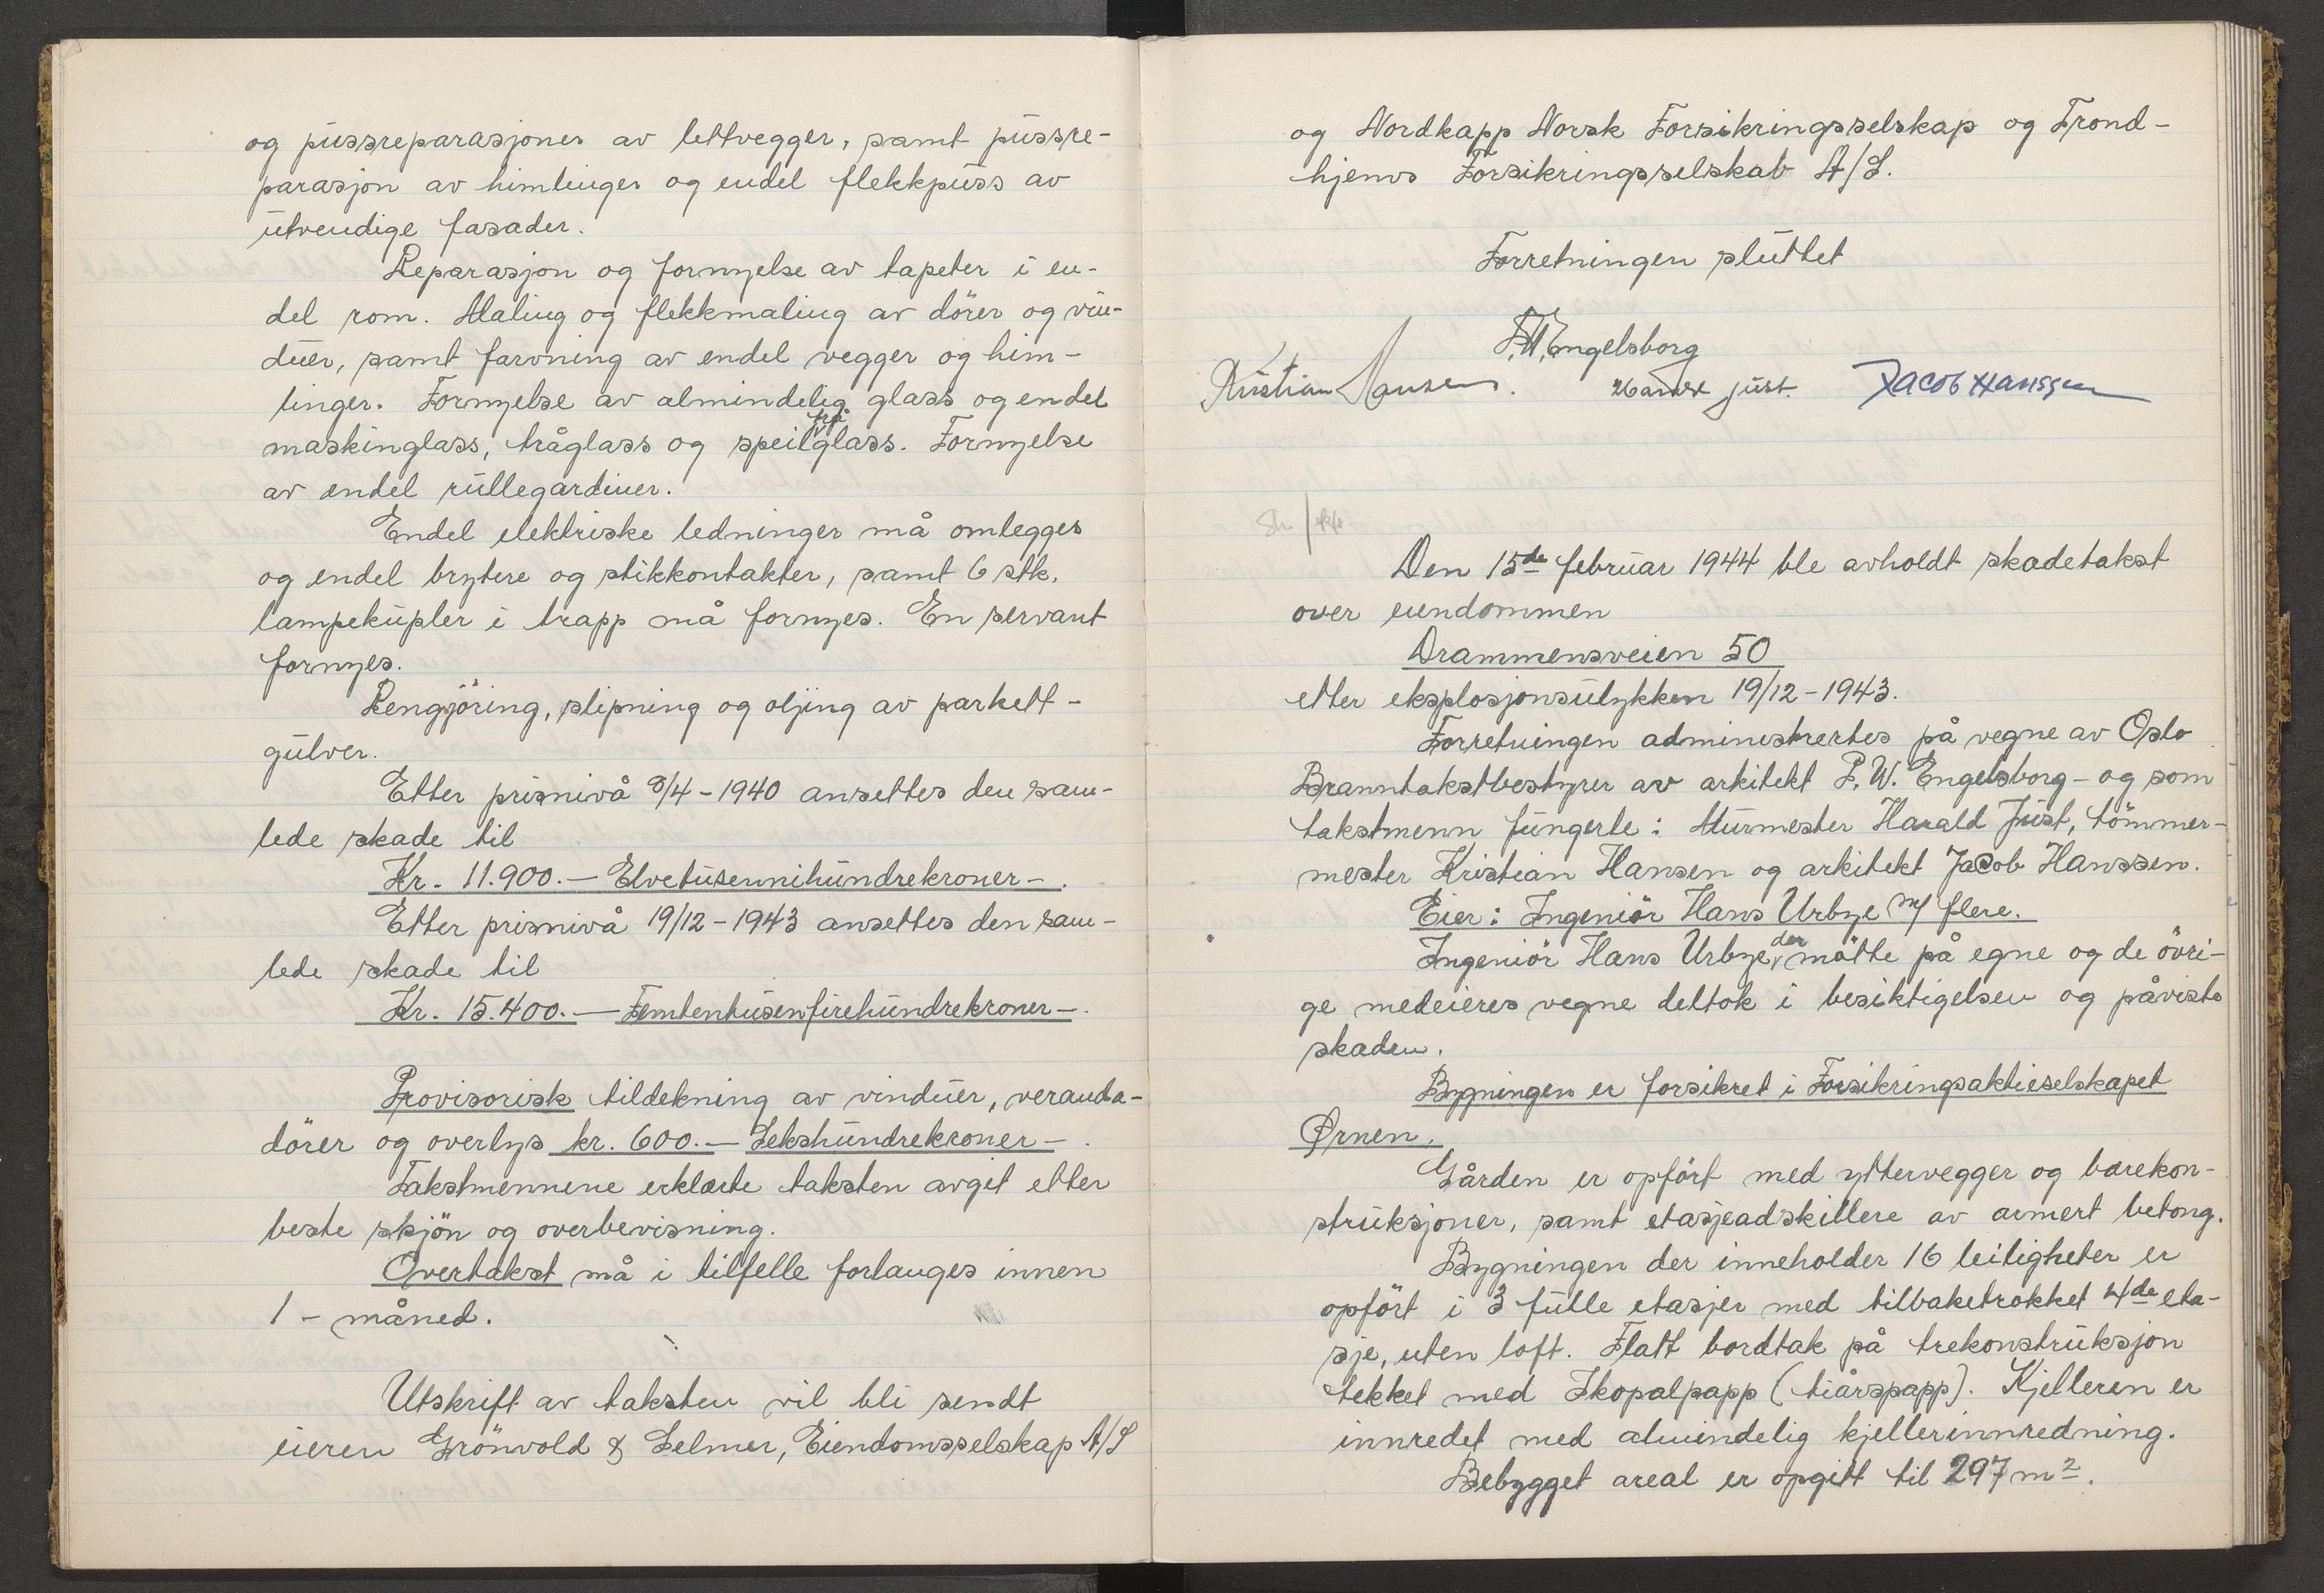 og pussreparasjoner av lettvegger, samt pussre-
parasjon av himlinger og endel flekkpuss av
utvendige fasader.
Reparasjon og fornyelse av tapeter i en-
del rom. Maling og flekkmaling av dörer og vin-
duer, samt farvning av endel vegger og him-
linger. Fornyelse av almindelig glass og endel
maskinglass, tråglass og speilglass. Fornyelse
av endel rullegardiner.
Endel elektriske ledninger må omlegges
og endel brytere og stikkontakter, samt 6 stk.
lampekupler i trapp må fornyes. En servant
fornyes.
Rengjöring, slipning og oljing av parkett-
gulver.
Etter prisnivå 8/4-1940 ansettes den sam-
lede skade til
Kr. 11.900.— Elvetusennihundrekroner-.
Etter prisnivå 19/12-1943 ansettes den sam-
lede skade til
Kr. 15.400.— Femtentusenfirehundrekroner-.
Provisorisk tildekning av vinduer, veranda-
dörer og overlys kr. 600.— Sekshundrekroner-.
Takstmennene erklærte taksten avgit etter
beste skjön og overbevisning.
Overtakst må i tilfelle forlanges innen
1 - måned.
Utskrift av taksten vil bli sendt
eieren Grönvold & Selmer, Eiendomsselskap A/S
og Nordkapp Norsk Forsikringsselskap og Trond-
hjems Forsikringsselskab A/S.
Forretningen sluttet
P.W. Engelsborg
Kristian Hansen. Harald Just. Jacob Hanssen
Den 15de februar 1944 ble avholdt skadetakst
over eiendommen
Drammensveien 50
etter eksplosjonsulykken 19/12-1943.
Forretningen administrertes på vegne av Oslo
Branntakstbestyrer av arkitekt P.W. Engelsborg - og som
takstmenn fungerte: Murmester Harald Just, tömmer-
mester Kristian Hansen og arkitekt Jacob Hanssen.
Eier: Ingeniör Hans Urbye m/ flere.
Ingeniör Hans Urbye, der mötte på egne og de övri-
ge medeieres vegne deltok i besiktigelsen og påviste
skaden.
Bygningen er forsikret i Forsikringsaktieselskapet
Ørnen.
Gården er opfört med yttervegger og bærekon-
struksjoner, samt etasjeadskillere av armert betong.
Bygningen der inneholder 16 leiligheter er
opfört i 3 fulle etasjer med tilbaketrokket 4de eta-
sje, uten loft. Flatt bordtak på trekonstruksjon
tekket med Ikopalpapp (tiårspapp). Kjelleren er
innredet med almindelig kjellerinnredning.
Bebygget areal er opgitt til 297 m².